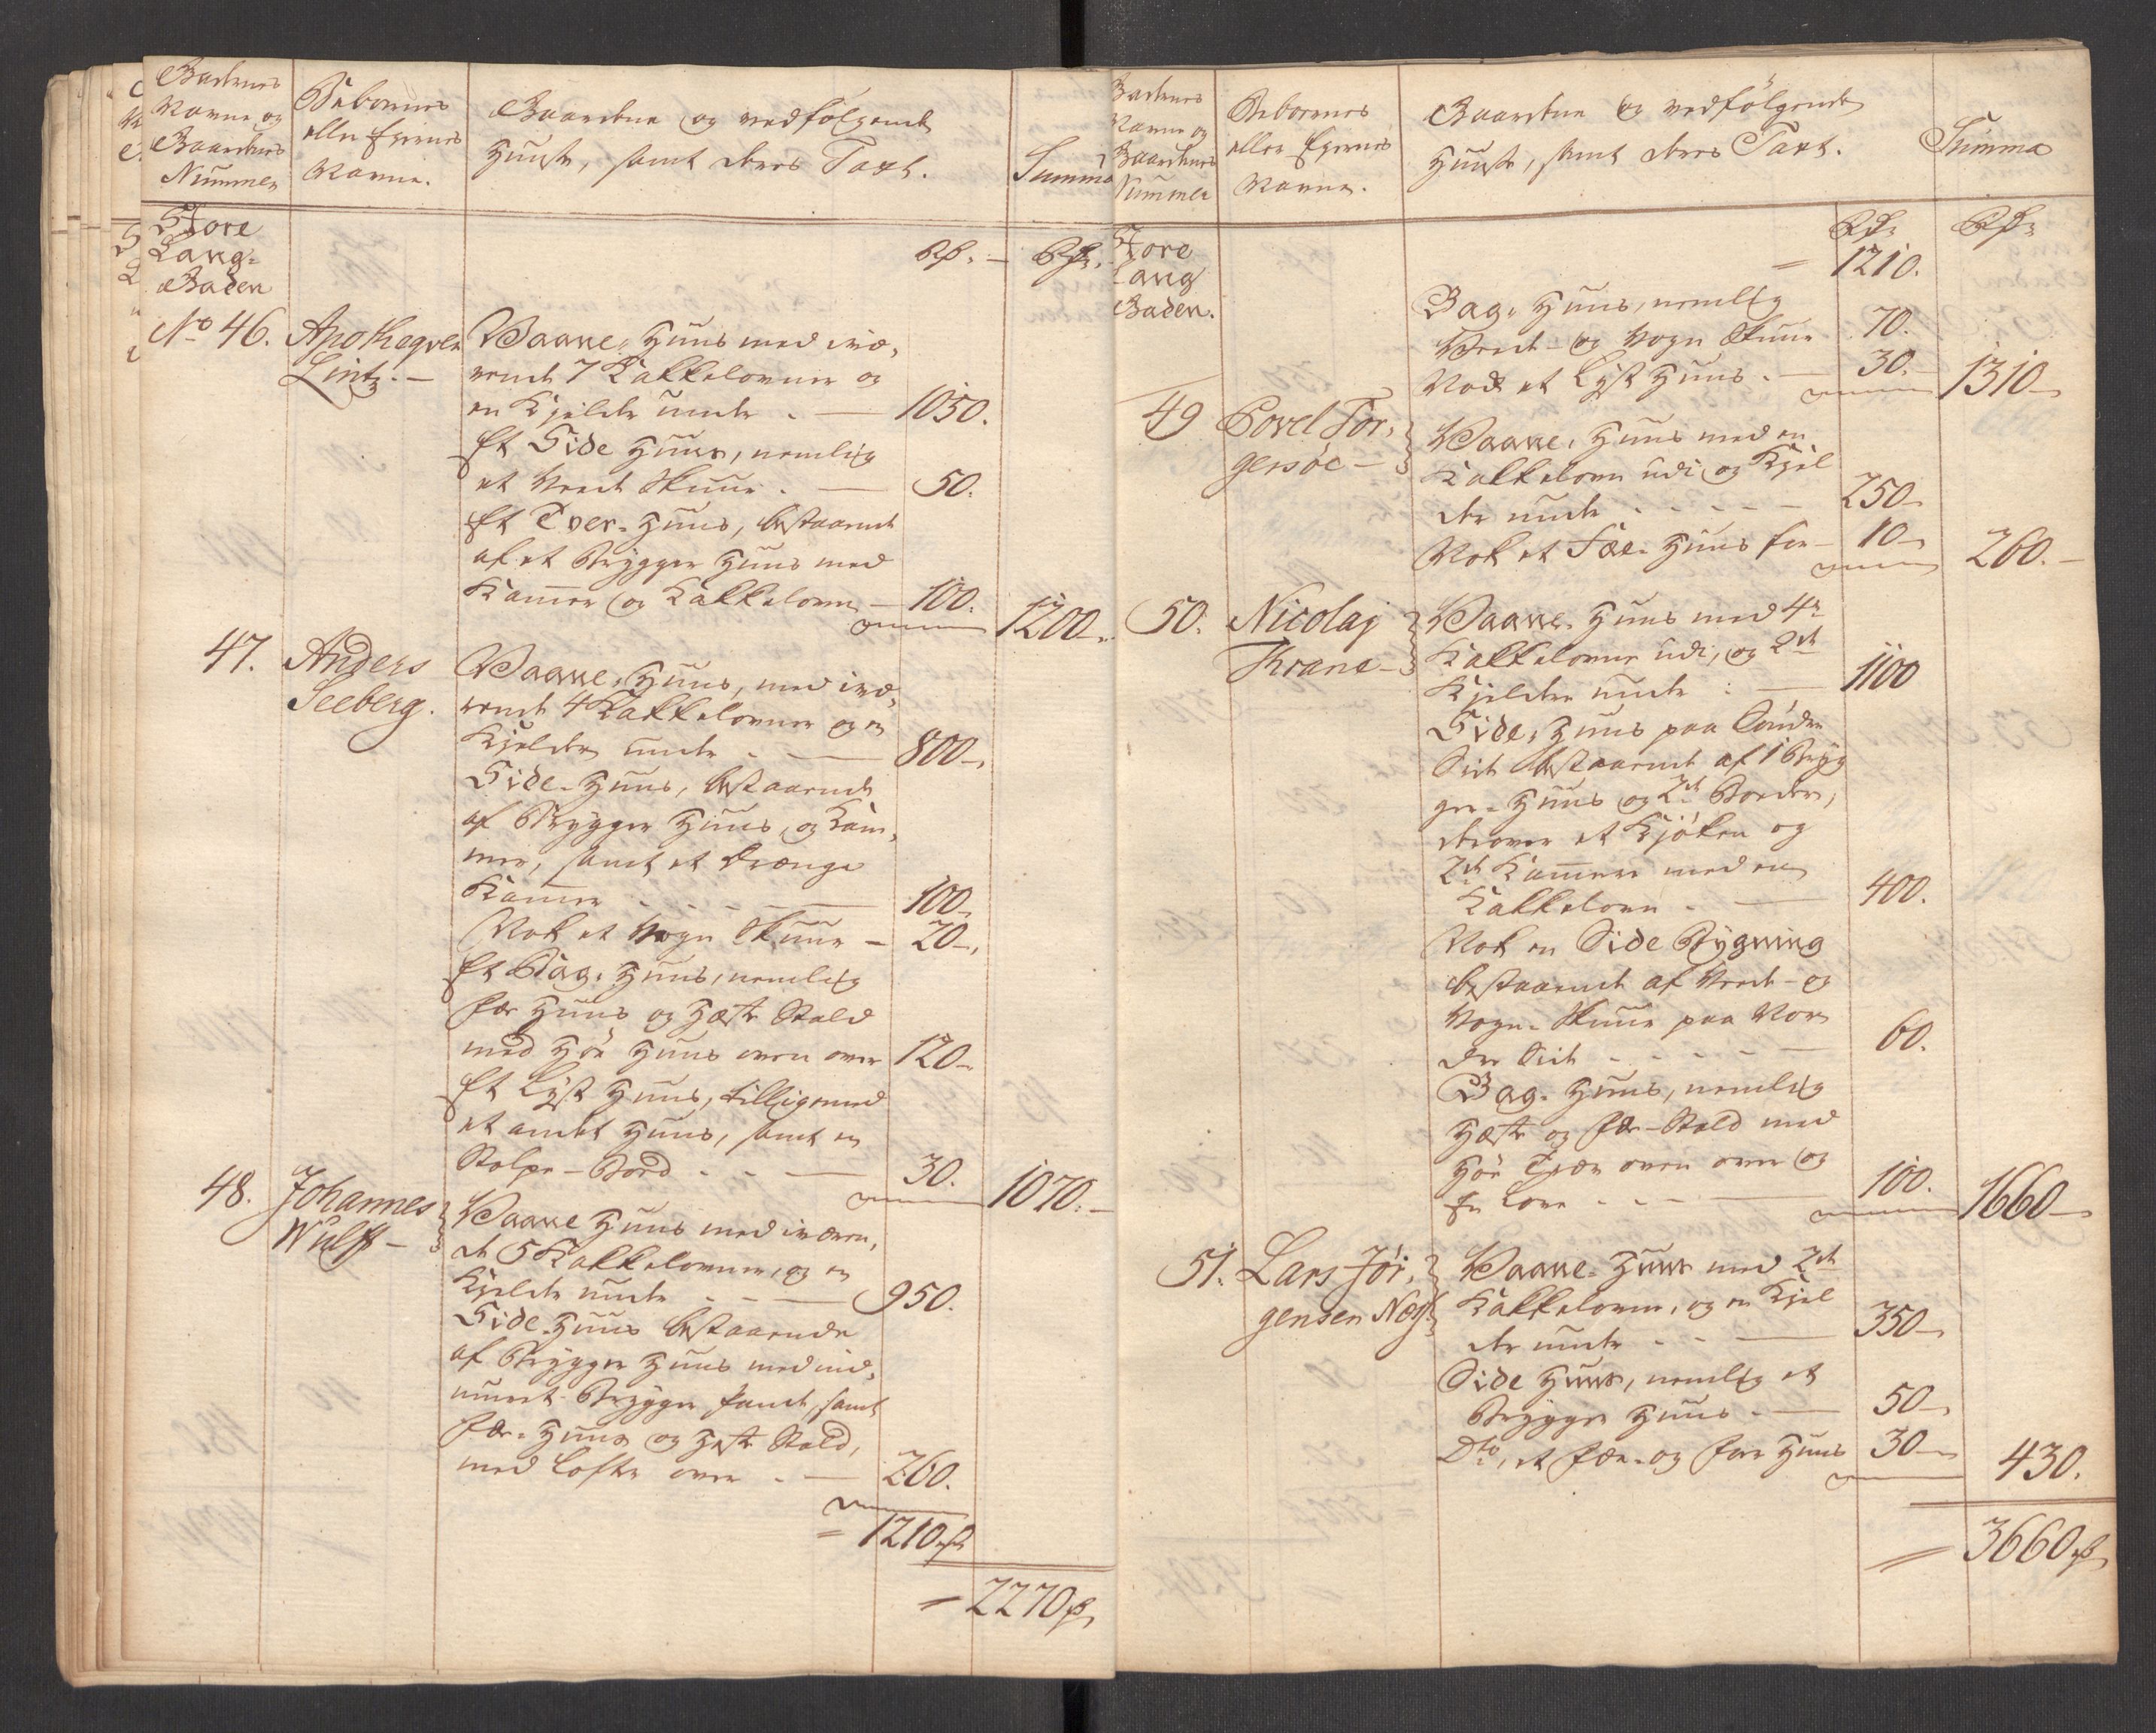 Gadernes
Navne og
Gaardenes
Nummer
Beboernes
eller Eiernes
Navne.
Gaardene og vedfølgende
Huuse, samt deres Taxt.
Summa
Store
Lang-
Gaden
Rdr. —
Rdr.
No 46.
Apotheqver
Lintz. —
Vaane-Huus med ivæ-
rende 7 Kakkelovner og
en Kjelder under . — 1050.
Et Side Huus, nemlig
et Veed Skuur . — 50.
Et Tver-Huus, bestaaende
af et Brygger Huus med
Kammer og Kakkelovn — 100.
1200 —
47.
Anders
Seeberg.
Vaane-Huus, med ivæ-
rende 4 Kakkelovner og en
Kjelder under . — 800 —
Side-Huus, bestaaende
af Brygger Huus, og Kam-
mer, samt et Drænge
Kammer . . . — 100.
Nok et Vogn Skuur — 20 —
Et Bag-Huus, nemlig
Fæe Huus og Hæste Stald
med Høe Huus oven over 120 —
Et Lyst Huus, tilligemed
et andet Huus, samt en
Stolpe-Bord . . — 30.
1070. —
48.
Johannes
Wulff —
Vaane Huus med iværen-
de 5 Kakkelovner, og en
Kjelder under . . — 950.
Side-Huus bestaaende
af Brygger Huus med ind-
muuret Brygger Pande, samt
Fæe-Huus og Heste Stald,
med Lofte over . — 260.
= 1210 rd
= 2270 rd
Gadernes
Navne og
Gaardenes
Nummer
Beboernes
eller Eiernes
Navne.
Gaardene og vedfølgende
Huuse, samt deres Taxt.
Summa
Store
Lang
Gaden.
Rdr.
Rdr.
= 1210.
Bag-Huus, nemlig
Veed- og Vogn Skuur 70.
Nok et Lyst Huus . — 30. —
1310 —
49
Povel Tor-
gersøe —
Vaane-Huus med en
Kakkelovn udi og Kjel
der under . . . . — 250 —
Nok et Fæe-Huus for — 10 —
260. —
50.
Nicolaj
Krane —
Vaane-Huus med 4re
Kakkelovner udi, og 2de
Kjelder under : — 1100
Side-Huus paa Sønder
Side bestaaende af 1 Bryg
ger-Huus og 2de Boeder,
derover et Kjøken og
2de Kammere med en
Kakkelovn . — 400.
Nok en Side Bygning
bestaaende af Veed- og
Vogn-Skuur paa Nor
der Side . . . . — 60.
Bag-Huus, nemlig
Hæste og Fæe-Stald med
Høe Træv oven over og
En Love . . . — 100.
1660 —
51.
Lars Jør-
gensen Næss
Vaane-Huus med 2de
Kakkelovner, og en Kjel
der under . . — 350 —
Side Huus, nemlig et
Brygger Huus . — 50 —
Dto, et Fæe- og Fore Huus 30 —
430.
= 3660 rd